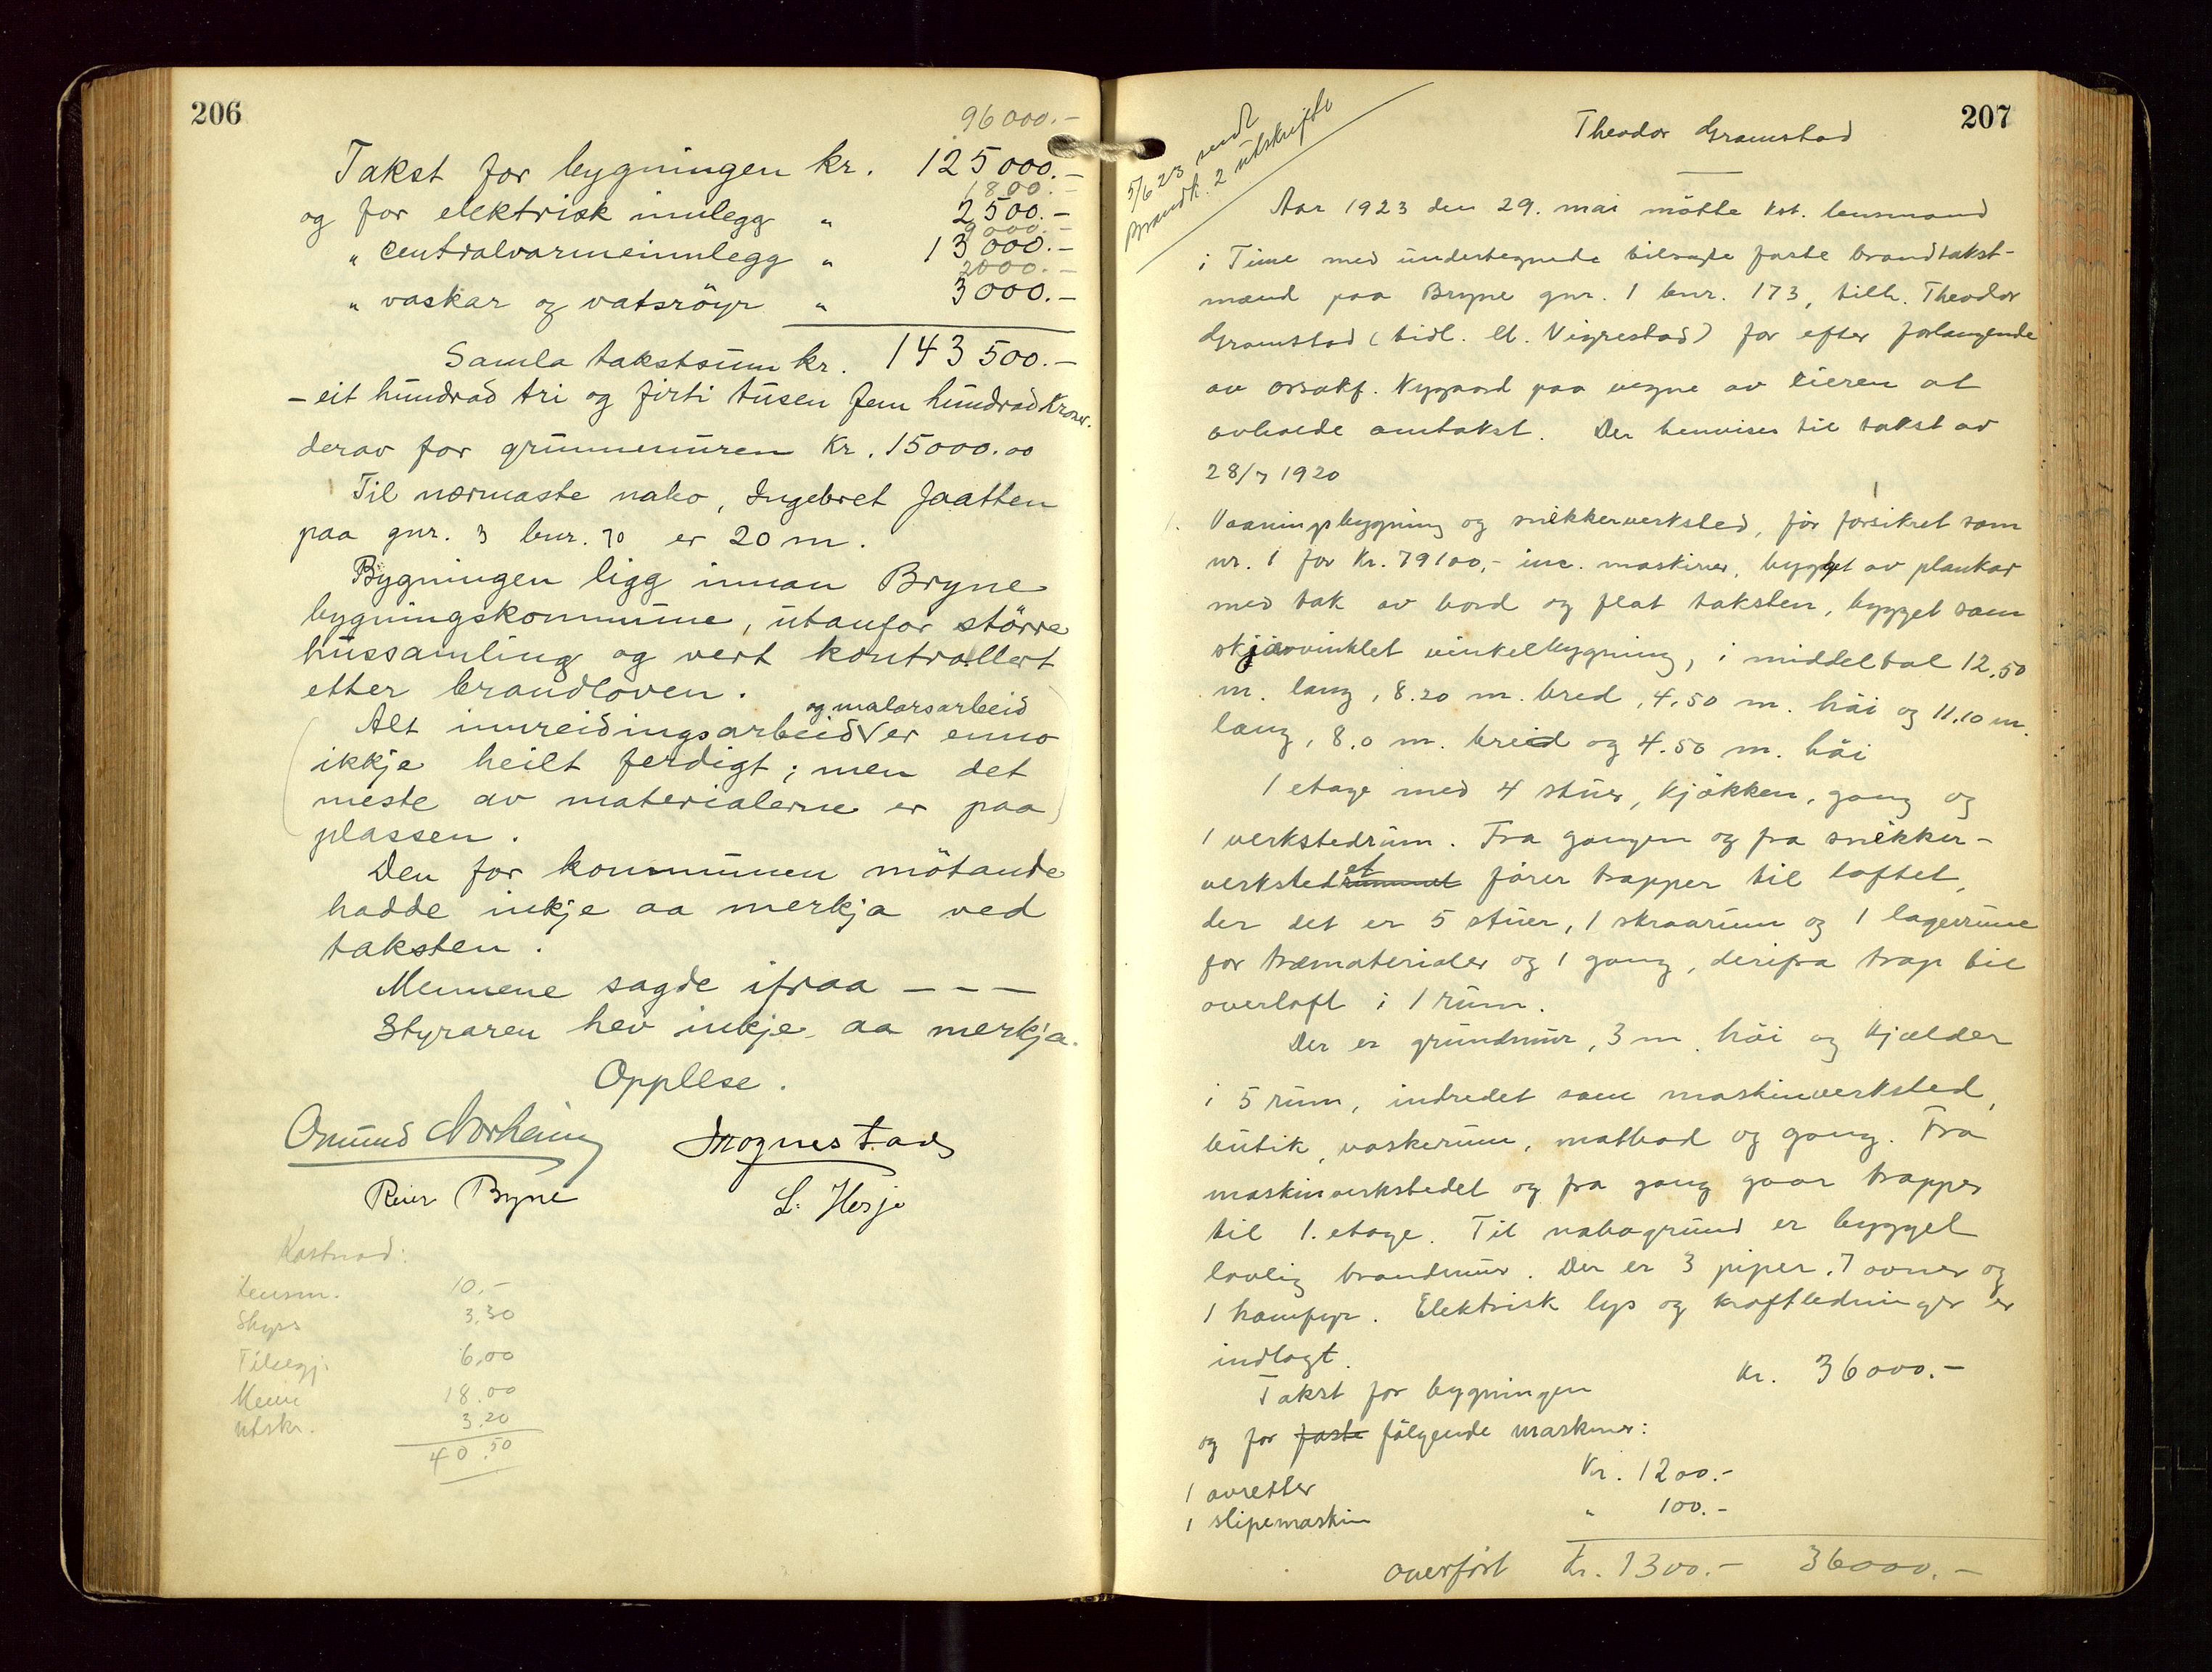 206
96000.-
Takst for bygningen kr. 125000.-
1800.-
og for elektrisk innlegg " 2500.-
9000.-
" centralvarmeinnlegg " 13000.-
2000.-
" vaskar og vatsröyr " 3000.-
Samla takstsum kr. 143500.-
- eit hundrad tri og firti tusen fem hundrad Kroner.
derav for grunnmuren Kr. 15000.00
Til nærmaste nabo, Ingebret Jaatten
paa gnr. 3 bnr. 70 er 20 m.
Bygningen ligg innan Bryne
bygningskommune, utanfor större
hussamling og vert kontrollert
etter brandloven.
og malarsarbeid
Alt innreidingsarbeid V er enno
ikkje heilt ferdigt; men det
meste av materialerne er paa
plassen.
Den for kommunen mötande
hadde inkje aa merkja ved
taksten.
Mennene sagde ifraa - - -
Styraren hev inkje aa merkja.
Opplese.
Omund Norheim Mognestad
Reier Bryne L. Hesje
Kostnad:
Lensm. 10,-
Skyss 3,30
Tilsegj. 6,00
Menn 18.00
Utskr. 3.20
40.50
207
5/6 23 sendt
Brandk. 2 utskrifter
Theodor Gramstad
Aar 1923 den 29. mai mötte kst. lensmand
i Time med undertegnede tilsagte faste brandtakst-
mænd paa Bryne gnr. 1 bnr. 173, tilh. Theodor
Gramstad (tidl. El. Vigrestad) for efter forlangende
av orsakf. Nygaard paa vegne av eieren at
avholde omtakst. Der henvises til takst av
28/7 1920
1. Vaaningsbygning og snekkerverksted, för forsikret som
nr. 1 for Kr. 79100,- inc. maskiner, bygget av plankar
med tak av bord og flat taksten, bygget som
skjævvinklet vinkelbygning, i middeltal 12,50
m. lang, 8.20 m. bred, 4,50 m. höi og 11,10 m.
lang, 8.0 m. breid og 4.50 m. höi
1 etage med 4 stuer, kjökken, gang og
1 verkstedrum. Fra gangen og fra snekker-
verkstedrummet et förer trapper til loftet,
der det er 5 stuer, 1 skraarum og 1 lagerrum
for træmaterialer og 1 gang, derifra trap til
overloft i 1 rum.
Der er grundmur, 3 m. höi og kjælder
i 5 rum, indredet som maskinverksted,
butik, vaskerum, matbod og gang. Fra
maskinverkstedet og fra gang gaar trapper
til 1. etage. Til nabogrund er bygget
lovlig brandmur. Der er 3 piper, 7 ovner og
1 komfyr. Elektrisk lys og kraftledninger er
indlagt.
Takst for bygningen Kr. 36000.-
og for faste fölgende maskiner:
1 avretter Kr. 1200.-
1 slipemaskin " 100.-
overfört Kr. 1300.- 36000.-